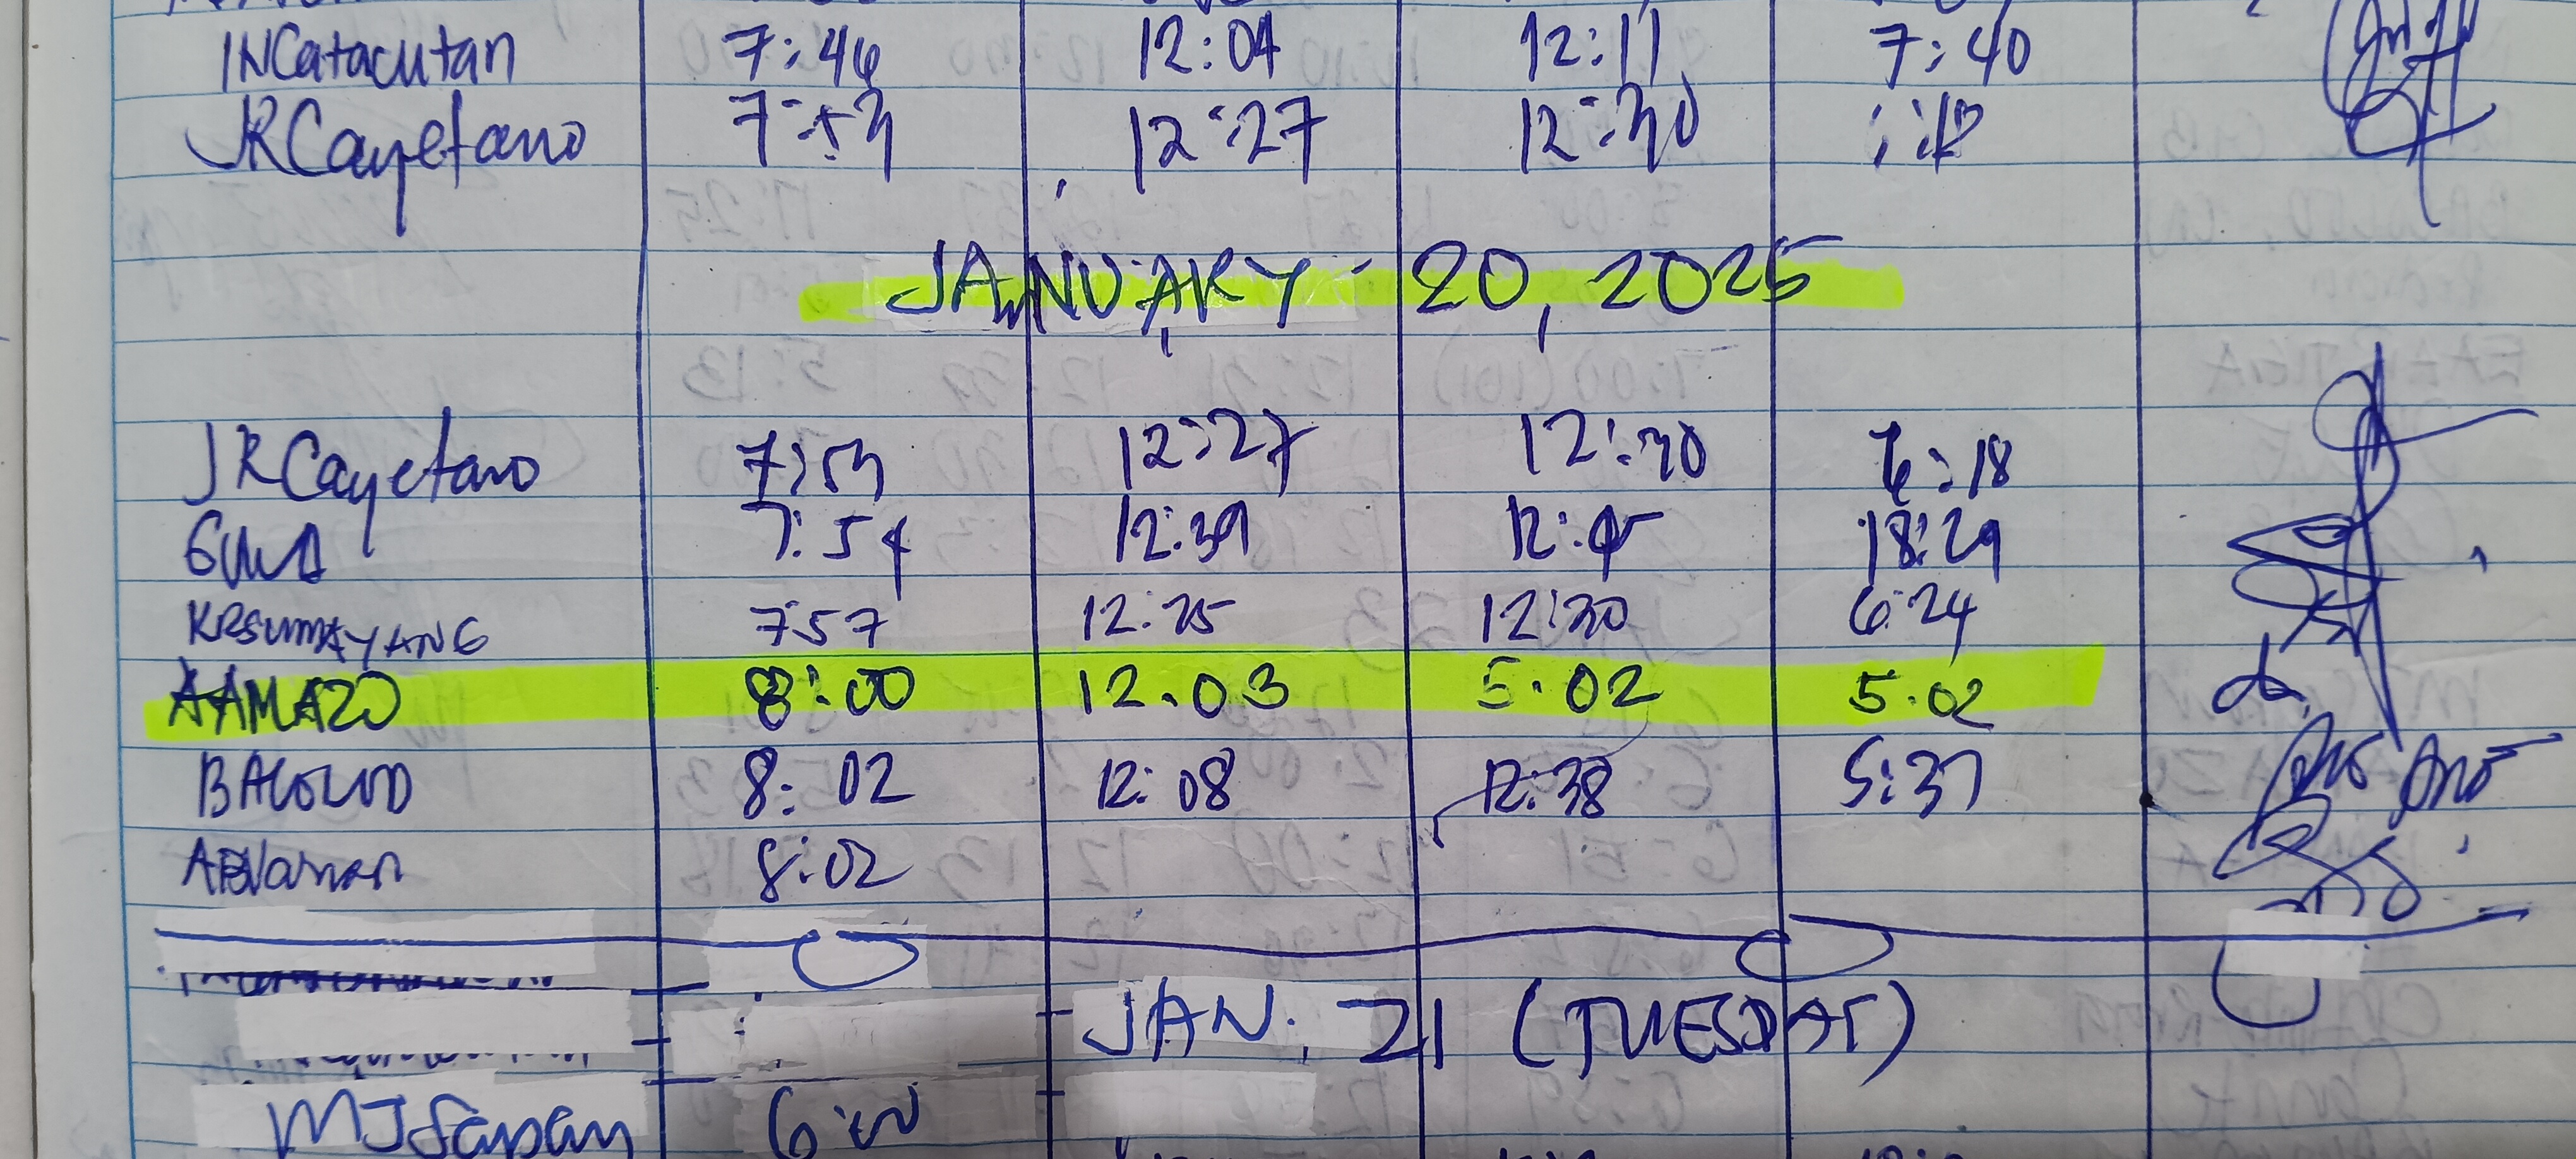 INCatacutan 7:46 12:04 12:11 7:40
JRCayetano 7:53 12:27 12:30
JANUARY 20, 2025
JRCayetano 7:53 12:27 12:30 6:18
7:54 12:39 12:45 18:29
KRSUMAYANG 7:57 12:25 12:30 6:24
AAMAZO 8:00 12.03 5.02 5.02
BACOLOD 8:02 12:08 12:38 5:37
8:02
JAN. 21 (TUESDAY)
6:00